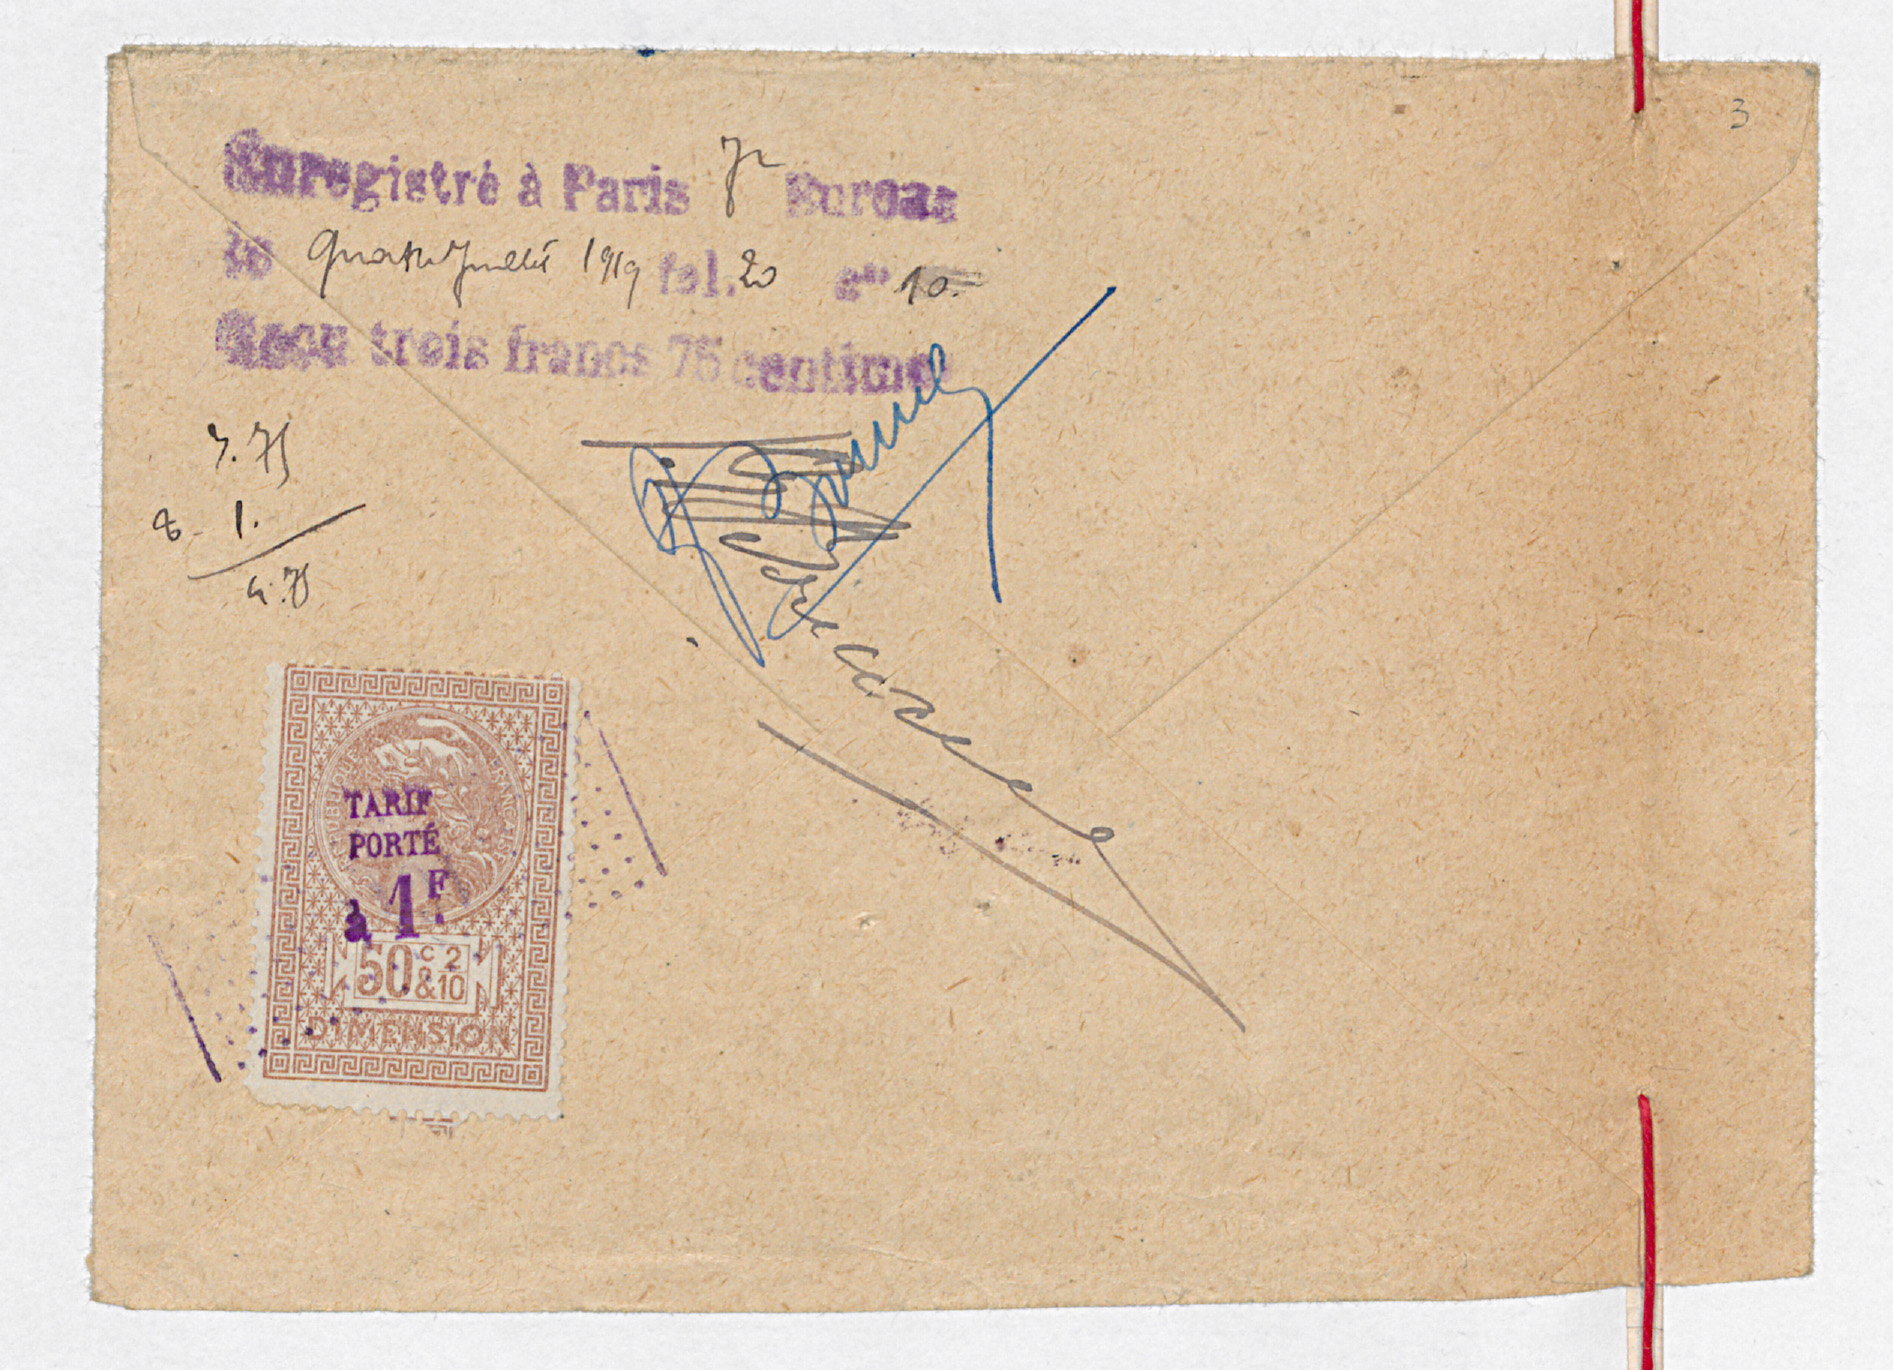 3
Enregistré à Paris 7e Bureau
le quatre Juillet 1919 fol. 20 cse 10.
Reçu trois francs 75 centimes
3.75
1.
4.75
RÉPUBLIQUE FRANÇAISE
TARIF
PORTÉ
à 1F
50c & 2/10
DIMENSION